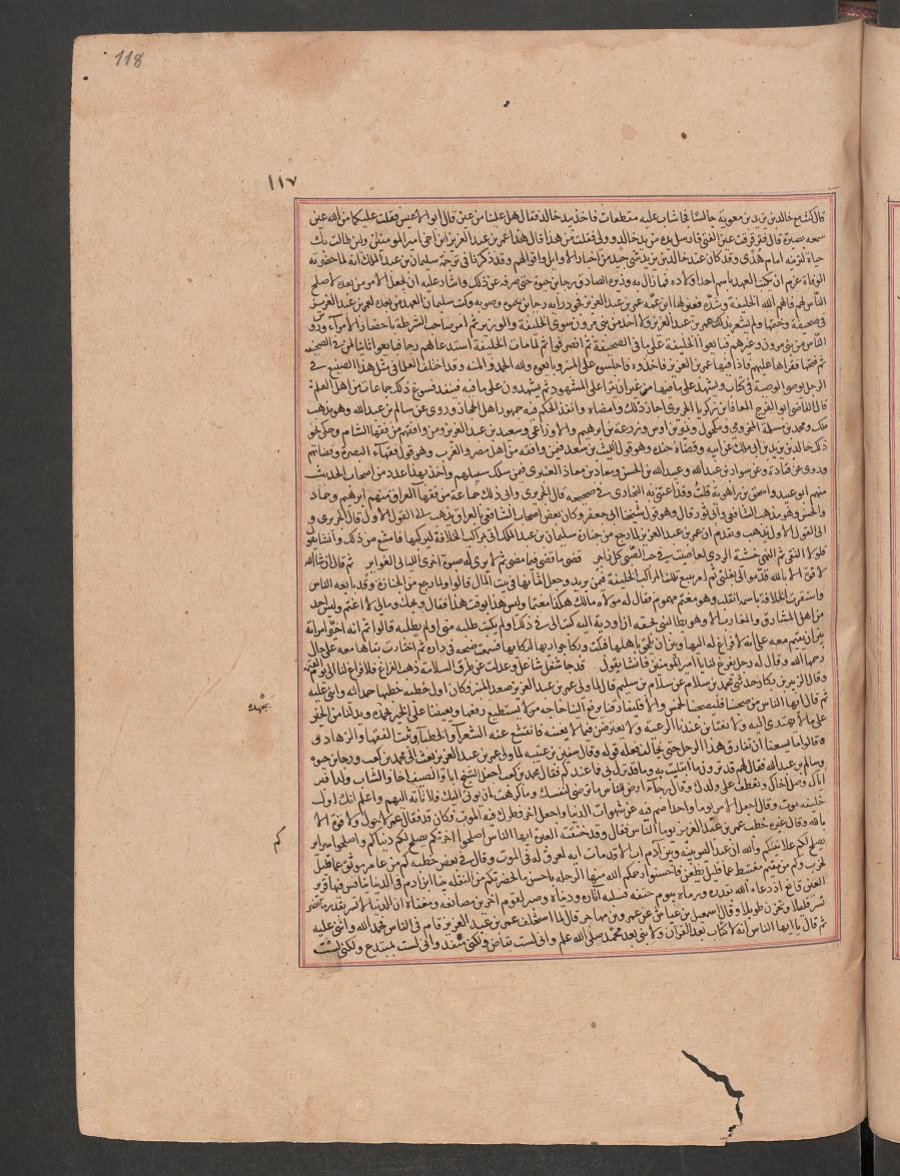 118
١١٧
قال كنت مع خالد بن يزيد بن معوية جالسا فى شاب عليه مقطعات فاخذ بيد خالد فقال هل علينا من عين قال ابو الاعيس فقلت عليكما من الله عين
سمعه بصيرة قال فترقرقت عين الفتى فارسل يده من يد خالد وولى فقلت من هذا قال هذا عمر بن عبد العزيز ابن اخى امير المومنين ولين طالت بك
حياة لترينه امام هدى وقد كان عند خالد بن يزيد شى جيد من اخبار الاوايل واقوالهم وقد ذكرنا فى ترجمة سليمان بن عبد الملك انه لما حضرته
الوفاة عزم ان يكتب العهد باسم احد اولاده فما زال به وزيره الصادق رجا بن حيوة حتى صرفه عن ذلك واشار عليه ان يجعل الامر من بعده لاصلح
الناس لهم فالهم الله الخليفة رشده فعين لها ابن عمه عمر بن عبد العزيز فجود رايه رجا بن حيوه وصوبه وكتب سليمان العهد من بعده لعمر بن عبد العزيز
فى صحيفة وختمها ولم يشعر بذلك عمر بن عبد العزيز ولا احد من بنى مرون سوى الخليفة والوزير ثم امر صاحب الشرطة باحضار الامرآء وروس
الناس من بنى مرون وغيرهم فبايعوا الخليفة على ما فى الصحيفة ثم انصرفوا ثم لما مات الخليفة استدعاهم رجا فبايعوا ثانيا لمن فى الصحيفه
ثم فتحها فقراها عليهم فاذا فيها عمر بن عبد العزيز فاخذوه فاجلسوه على المنبر وبايعوه ولله الحمد والمنه وقد اختلف العلما فى مثل هذا الصنيع فى
الرجل يوصى الوصية فى كتاب ويشهد على ما فيها من غير ان يقرا على الشهود ثم يشهدون على ما فيه فينفذ فسوغ ذلك جماعات من اهل العلم
قال القاضى ابو الفرج المعافا بن زكريا الجريرى اجاز ذلك وامضاه وانفذ الحكم فيه جمهور اهل الحجاز وروى عن سالم بن عبد الله وهو مذهب
ملك ومحمد بن مسلمة المخزومى ومكحول ونمير بن اوس وزرعة بن ابرهيم والاوزاعى وسعيد بن عبد العزيز ومن وافقهم من فقها الشام وحكى نحو
ذلك خالد بن يزيد بن ابى ملك عن ابيه وقضاة جنده وهو قول الليث بن سعد فيمن وافقه من اهل مصر والمغرب وهو قول فقهاء البصرة وقضاتهم
وروى عن قتادة وعن سوار بن عبد الله وعبيد الله بن الحسن ومعاذ بن معاذ العنبرى فيمن سلك سبيلهم واخذ بهذا عدد من اصحاب الحديث
منهم ابو عبيد واسحق بن راهويه قلت وقد اعتنى به البخارى فى صحيحه قال الجريرى وابى ذلك جماعة من فقها العراق منهم ابرهيم وحماد
والحسن وهو مذهب الشافعى وابى ثور قال وهو قول شيخنا ابى جعفر وكان بعض اصحاب الشافعى بالعراق يذهب الى القول الاول قال الجريرى و
الى القول الاول نذهب وتقدم ان عمر بن عبد العزيز لما رجع من جنازة سليمان بن عبد الملك اتى بمراكب الخلافة ليركبها فامتنع من ذلك وانشا يقول
فلولا التقى ثم النهى خشية الردى لعاصيت فى حب الصبى كل زاجر قضى ما قضى فيما مضى ثم لا يرى له صبوة اخرى الليالى الغوابر ثم قال ان شا الله
لا قوة الا بالله قدموا الى بغلتى ثم امر ببيع تلك المراكب الخليفية فيمن يزيد وجعل اثمانها فى بيت المال قالوا ولما رجع من الجنازة وقد بايعه الناس
واستقرت الخلافة باسمه انقلب وهو مغتم مهموم فقال له مولاه مالك هكذا مغتما وليس هذا بوقت هذا فقال ويحك ومالى لا اغتم وليس احد
من اهل المشارق والمغارب الا وهو يطالبنى بحقه ان اوديه اليه كتب الى فى ذلك او لم يكتب طلبه منى او لم يطلبه قالوا ثم انه خير امراته
بين ان تقيم معه على انه لا فراغ له اليها وبين ان تلحق باهلها فبكت وبكا جواريها لبكايها فسمعت ضجه فى داره ثم اختارت مقامها معه على كل حال
رحمها الله وقال له رجل تفرغ لنا يا امير المومنين فانشا يقول قد جا شغل شاغل وعدلت عن طرق السلامه ذهب الفراغ فلا فراغ لنا الى يوم القيمه
وقال الزبير بن بكار حدثنى محمد بن سلام عن سلام بن سليم قال لما ولى عمر بن عبد العزيز صعد المنبر فكان اول خطبه خطبها حمد الله واثنى عليه
ثم قال ايها الناس من صحبنا فليصحبنا بخمس والا فليفارقنا يرفع الينا حاجه من لا يستطيع رفعها ويعيننا على الخير بجهده ويدلنا من الخير
بجهده
على ما لا نهتدى اليه ولا يغتابن عندنا الرعيه ولا يعترضن فيما لا يعنيه فانقشع عنه الشعرآ والخطبآ وثبت الفقها والزهاد و
وقالوا ما يسعنا ان نفارق هذا الرجل حتى يخالف فعله قوله وقال سفين بن عيينه لما ولى عمر بن عبد العزيز بعث الى محمد بن كعب ورجا بن حيوه
وسالم بن عبد الله فقال لهم قد ترون ما ابتليت به وما قد نزل بى فما عندكم فقال محمد بن كعب اجعل الشيخ ابا والنصيف اخا والشاب ولدا فبر
اباك وصل اخاك وتعطف على ولدك وقال رجآء ارض للناس ما ترضى لنفسك وما كرهت ان يوتى اليك فلا تاته اليهم واعلم انك اول
خليفه يموت وقال سالم اجعل الامر يوما واحدا صم فيه عن شهوات الدنيا واجعل اخر فطرك فيه الموت فكان قد فقال عمر لا حول ولا قوة الا
بالله وقال غيره خطب عمر بن عبد العزيز يوما الناس فقال وقد خنقته العبرة ايها الناس اصلحوا اخرتكم يصلح لكم دنياكم واصلحوا سرايركم
يصلح لكم علانيتكم والله ان عبدا ليس بينه وبين آدم اب الا قد مات انه لمعرق له فى الموت وقال فى بعض خطبه كم من عامر موثق عما قليل
يخرب وكم من مقيم مغتبط عما قليل يظعن فاحسنوا رحمكم الله منها الرحله باحسن ما بحضرتكم من النقله بينا ابن ادم فى الدنيا ينافس فيها قرير
العين قانع اذ دعاه الله بقدره ورماه بيوم حتفه فسلبه اثاره ودنياه وصير لقوم اخرين مصانعه ومغناه ان الدنيا لا تسر بقدر ما تضر
تسر قليلا وتحزن طويلا وقال اسمعيل بن عياش عن عمرو بن مهاجر قال لما استخلف عمر بن عبد العزيز قام فى الناس فحمد الله واثنى عليه
ثم قال يا ايها الناس انه لا كتاب بعد القرآن ولا نبى بعد محمد صلى الله عليه وسلم وانى لست بقاض ولكنى منفذ وانى لست بمبتدع ولكنى لست